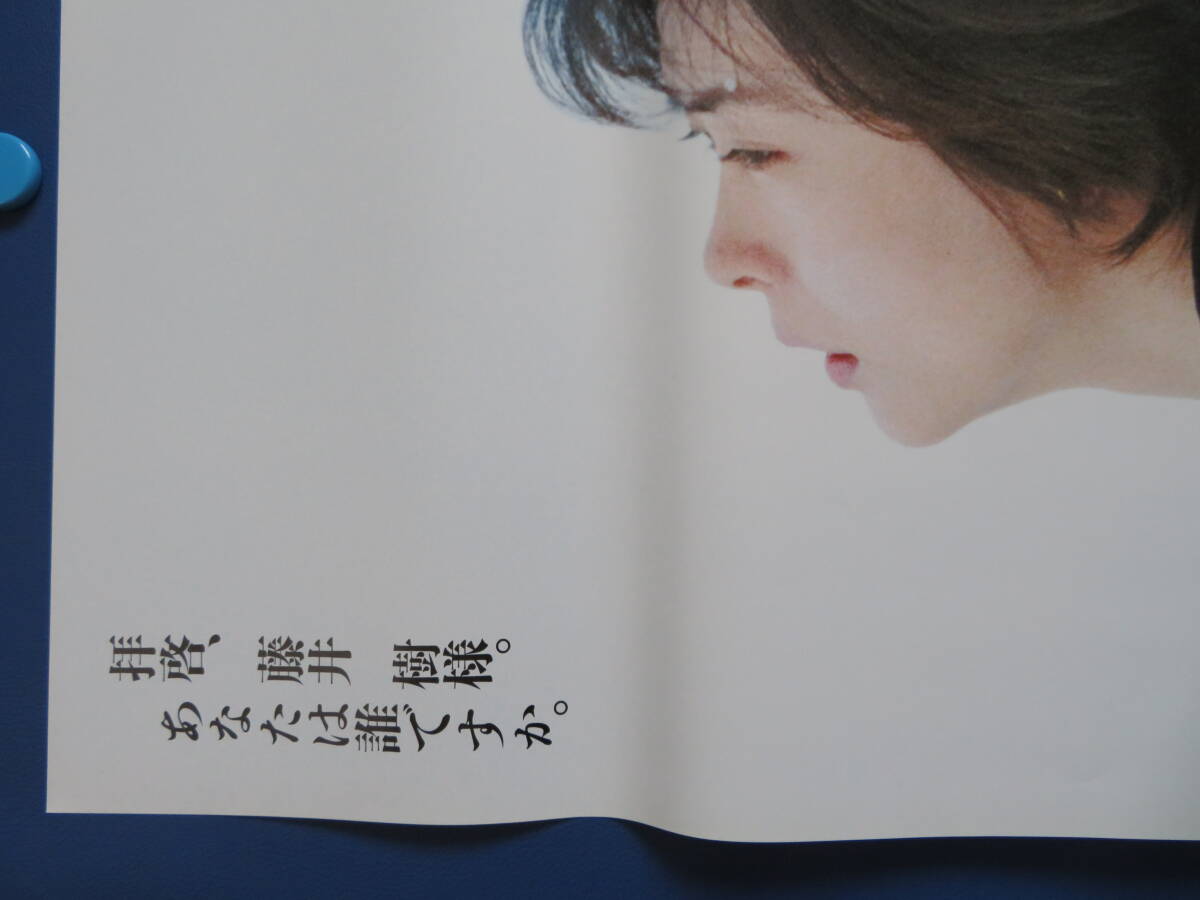 拝啓、藤井 樹様。
あなたは誰ですか。